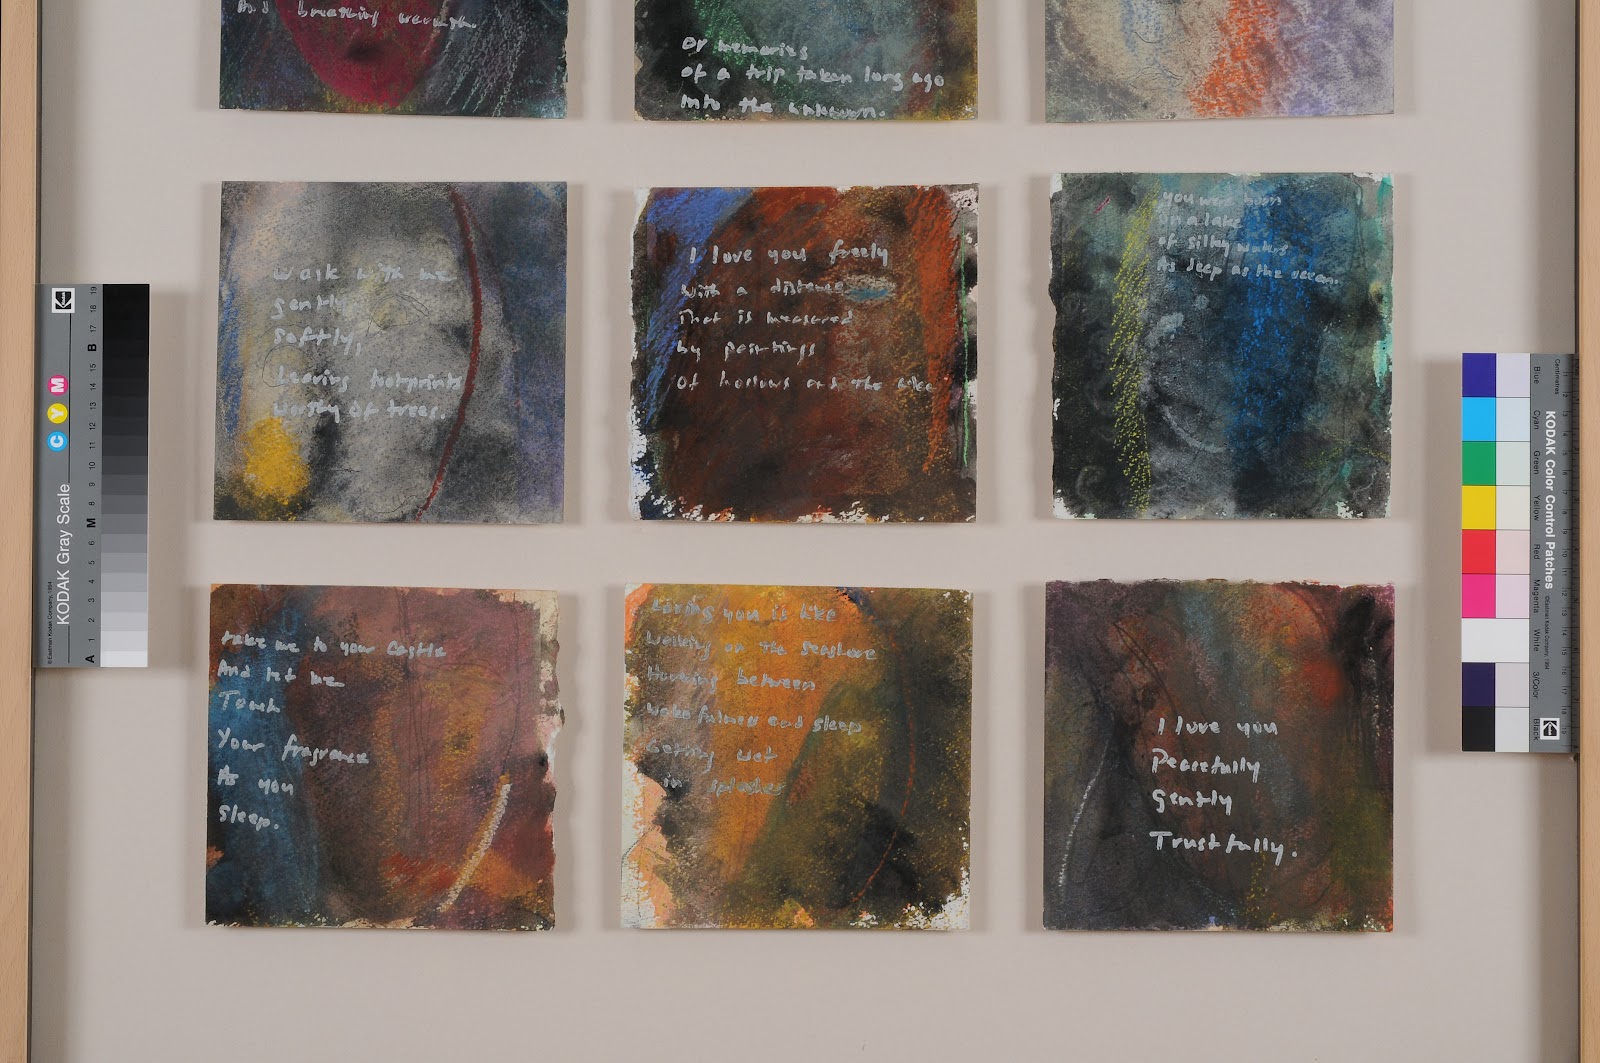 And breathing warmth.
Or memories
of a trip taken long ago
into the unknown.
Walk with me
gently
softly,
Leaving footprints
worthy of trees.
I love you freely
with a distance
That is measured
by paintings
Of hollows and the
you were born
on a lake
of silky waters
As deep as the ocean.
take me to your castle
And let me
Touch
Your fragrance
As you
Sleep.
Loving you is like
Walking on the seashore
Hovering between
wakefulness and sleep
Getting wet
in splashes
I love you
Peacefully
Gently
Trustfully.
KODAK Gray Scale
C Y M
Kodak
©Eastman Kodak Company, 1994
A 1 2 3 4 5 6 M 8 9 10 11 12 13 14 15 B 17 18 19
KODAK Color Control Patches
©Eastman Kodak Company, 1994
Centimetres
Blue
Cyan
Green
Yellow
Red
Magenta
White
3/Color
Black